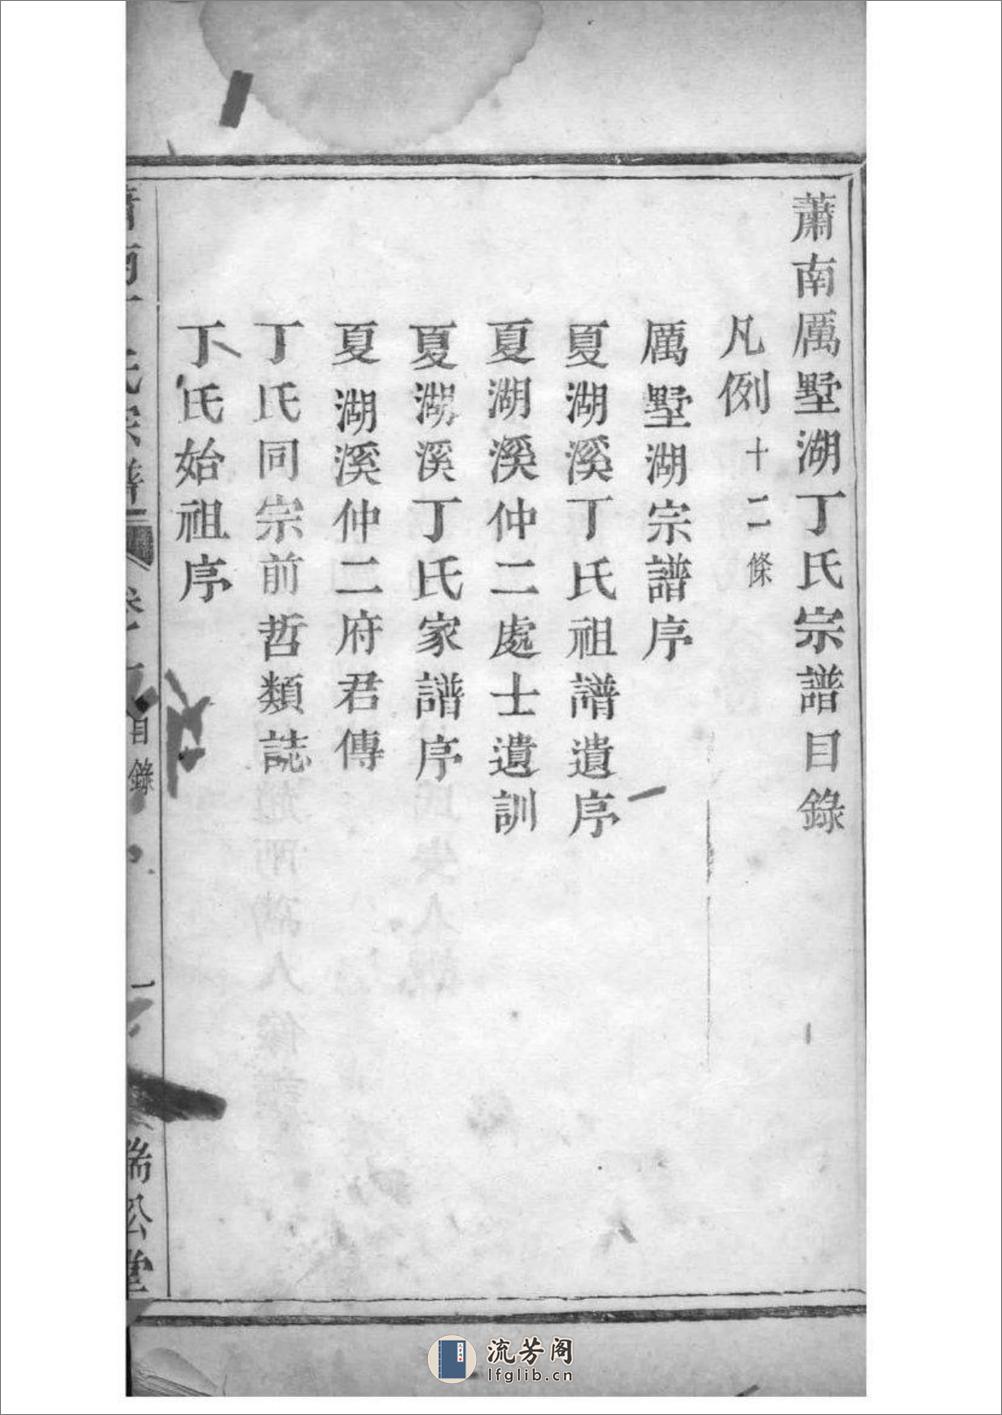 蕭南厲墅湖丁氏宗譜目錄
凡例十二條
厲墅湖宗譜序
夏湖溪丁氏祖譜遺序
夏湖溪仲二處士遺訓
夏湖溪丁氏家譜序
夏湖溪仲二府君傳
丁氏同宗前哲類誌
丁氏始祖序
蕭南丁氏宗譜
目錄
流芳阁
lfglib.cn